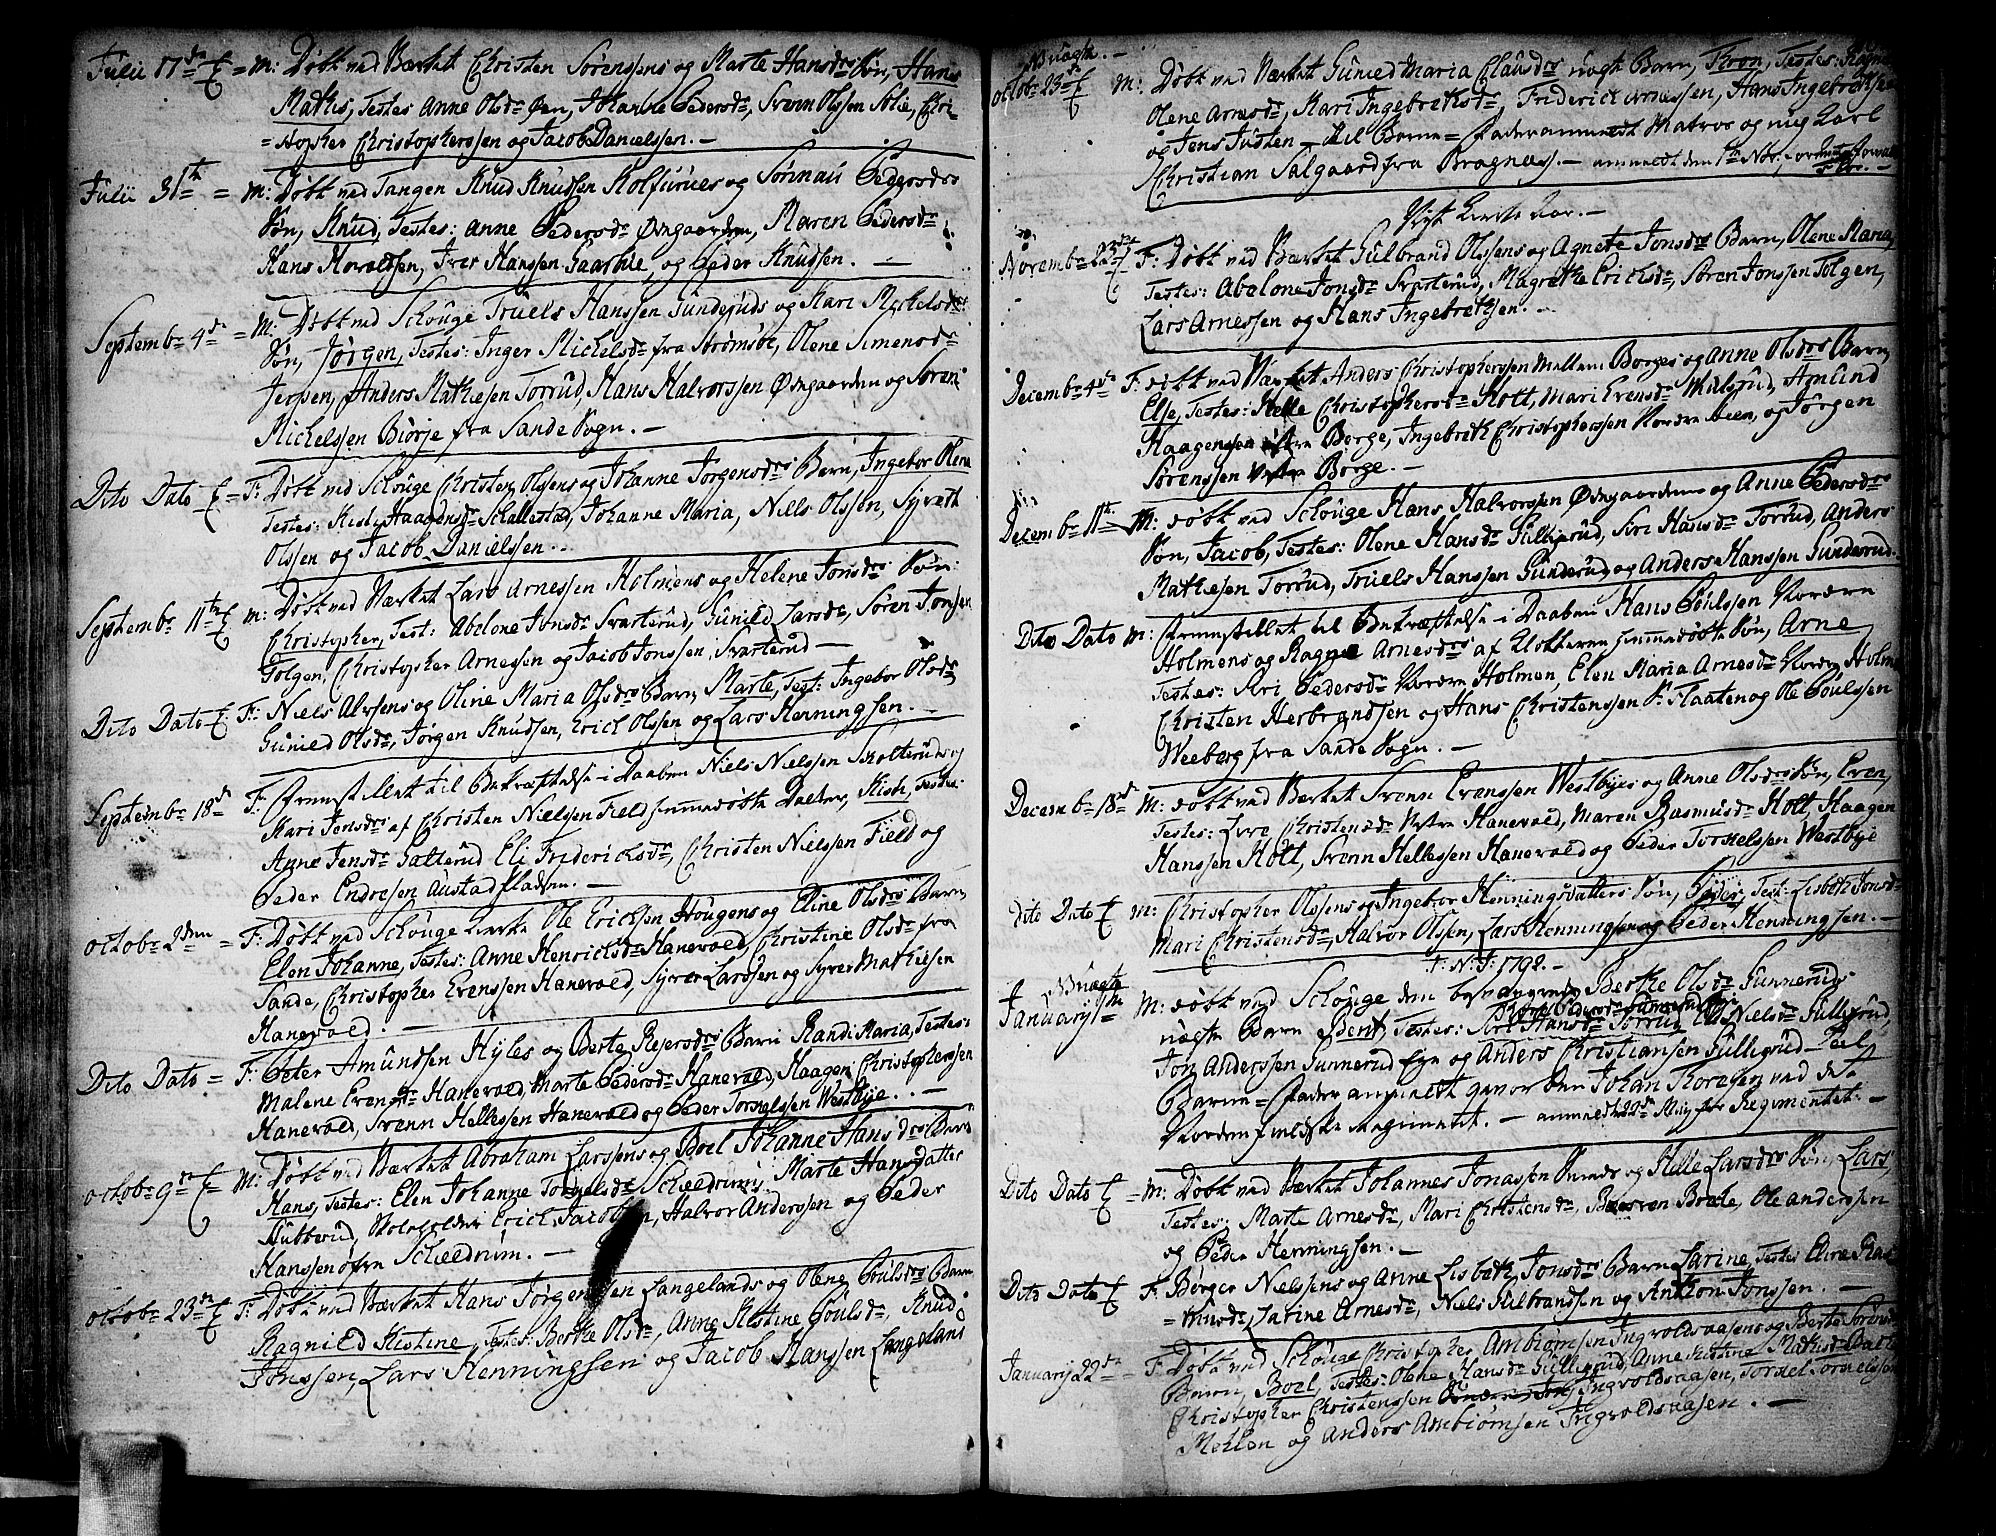 Julii 17de E = M: Døbt ved Værket Christen Sørenssens og Marte Hansdrs Søn, Hans
Mathis, Testes Anne Olsdr Øen, Johanne Pedersdr, Svenn Olssen Solie, Chri-
=stopher Christopherssen og Jacob Danielssen. -
Julii 31th = M: Døbt ved Tangen Knud Knudsen Kolfurues og Sønnau Pedersdrs
Søn, Knud, Testes: Anne Pedersdr Østgaarden, Maren Pedersdr
Hans Hovaldsen, Iver Hanssen Gaarhue, og Peder Knudsen. -
Septembr 4de = M: Døbt ved Schouge Truels Hanssen Gunderuds og Kari Mickelsdrs
Søn, Jørgen, Testes: Inger Mickelsdr fra Strømsøe, Olene Simensdr
Jerpen, Anders Mathiesen Torrud, Hans Halvorssen Østgaarden og Søren
Michelssen Biørje fra Sande Sogn. -
Dito Dato E = F: Døbt ved Schouge Christen Olssens og Johanne Jørgensdrs Barn, Ingebor Olena
Testes: Kisti Haagensdr Schallestad, Johanne Maria, Niels Olssen, Syverth
Olssen og Jacob Danielssen. -
Septembr 11te E M: Døbt ved Værket Lars Arnessen Holmens og Helene Jonsdrs Søn:
Christopher, Test: Abelone Jonsdr Svarterud, Gunild Larsdr, Søren Jonsen
Tolgen, Christopher Arnessen og Jacob Jonssen, Svarterud -
Dito Dato E F: Niels Alvsens og Oline Maria Olsdrs Barn, Marte, Test: Ingebor Olsdr
Gunild Olsdr, Jørgen Knudsen, Erich Olssen og Lars Henningsen. -
Septembr 18de F: Fremstillet til Bekræftelse i Daaben Niels Nielssen Skolteruds og
Kari Jonsdrs af Christen Nielssen Field hiemmedøbte Datter, Kisti, Testes:
Anne Jensdr Satterud Eli Fridericksdr, Christen Nielssen Field og
Peder Endresen Austad Pladsen. -
Octobr 2den = F: Døbt ved Schouge Kirke Ole Ericksen Hougens og Eline Olsdrs Barn,
Elen Johanne, Testes: Anne Henricksdr Hanevold, Christine Olsdr fra
Sande, Christopher Evenssen Hanevold, Syver Larssen og Syver Mathiesen
Hanevold. -
Dito Dato = F: Peter Amundsen Hyles og Berte Rejersdrs Barn Randi Maria, Testes:
Malene Evensdr Hanevold, Marte Pedersdr Hanevold, Haagen Christopherssen
Hanevold, Svenn Hellesen Hanevold og Peder Torkelssen Westbye. . -
Octobr 9de E = M: Døbt ved Værket Abraham Larssens og Boel Johanne Hansdrs Barn
Hans, Testes: Elen Johanne Torkelsdr Scheedrum, Marte Hansdatter
Hutterud, Erich Jacobsen, Halvor Anderssen og Peder
Hanssen øfra Scheedrum. -
Octobr 23de E F: Døbt ved Værket Hans Jørgensen Langelands og Olene Poulsdrs Barn
Ragnild Kistine, Testes: Berthe Olsdr, Anne Kistine Poulsdr, Knud
Jonssen, Lars Henningsen og Jacob Hanssen Langeland
Nuægte. -
Octobr 23de E M: Døbt ved Værket Gunild Maria Clausdrs uægte Barn, Thron, Testes: Ragne
Olene Arnesdr, Kari Ingebrethsdr, Friderich Arnessen, Hans Ingebrethsen
og Jens Justen - til Barne = Fader anmeldt Matros og mig Carl
Christian Salgaard fra Bragnæs. - anmeldt den 1te Nbr.
Nyt Kirke Aar. -
Novembr 27de E F: Døbt ved Værket Gulbrand Olssens og Agnete Jonsdrs Barn, Olene Maria,
Testes: Abelone Jonsdr Svarterud, Magrethe Ericksdr, Søren Jonssen Tolgen,
Lars Arnessen og Hans Ingebrethsen. -
Decembr 4de F: Døbt ved Værket Anders Christopherssen Mellem Borges og Anne Olsdrs Barn,
Else, Testes: Helle Christophersdr Holt, Mari Evensdr Mulsrud, Amund
Haagenssen Østre Borge, Ingebreth Christopherssen Nordre Veen, og Jørgen
Sørenssen Vestre Borge. -
Decembr 11th M: Døbt ved Schouge Hans Halvorssen Østgaardens og Anne Pedersdrs
Søn, Jacob, Testes: Olene Hansdr Gulligrud, Siri Hansdr Torrud, Anders
Mathiesen Torrud, Truels Hanssen Gunderud og Anders Hanssen Gunderud.
Dito Dato M: Fremstillet til Bekræftelse i Daaben Hans Poulssen Nordern
Holmens og Ragne Arnesdrs af Klokkeren hiemmedøbte Søn, Arne
Testes: Siri Pedersdr Nordern Holmen, Elen Maria Arnesdr Nordern Holmen
Christen Herbrandsen og Hans Christenssen Pr: Flaaten og Ole Poulssen
Weeberg fra Sande Sogn. -
Decembr 18de M: Døbt ved Værket Svenn Evenssen Westbyes og Anne Olsdrs Søn, Even,
Testes: Live Christensdr Vestre Hanevold, Maren Rasmusdr Holt, Haagen
Hanssen Holt, Svenn Hellessen Hanevold og Peder Torkelssen Westbye
Dito Dato E M: Christopher Olssens og Ingebor Henningsdatters Søn, Peder, Test: Lisbeth Jonsdr
Mari Christensdr, Halvor Olssen, Lars Henningsen og Peder Henningsen. -
T: N: J: 1792. -
Nuægte
January 1te M: Døbt ved Schouge den besvangrede Berthe Olsdr Gunneruds
uægte Barn Edent, Testes: Siri Hansdr Torrud, Elli Nielsdr Gulligrud,
Jon Anderssen Gunnerud Eye og Anders Christiansen Gulligrud - Til
Barne = Fader anmeldt Johan Thoresen ved det
Nordenfieldske Regiment. - anmeldt 22de May for Regimentet. -
Dito Dato E = M: Døbt ved Værket Johannes Jonassen og Helle Larsdrs Søn, Lars,
Testes: Marte Arnesdr, Mari Christensdr, Ole Anderssen
og Peder Henningsen. -
Dito Dato E F: Børger Nielsens og Anne Lisbeth Jonsdrs Barn Larine, Testes Elire Ras-
=musdr, Larine Arnesdr, Niels Gulbrandsen og Anthon Jonssen. -
January 22de = F: Døbt ved Schouge Christopher Ambiørnsen Ingvoldsaasens og Berte Sørensdr
Barn, Boel, Testes: Olene Hansdr Gulligrud, Anne Kistine Mathisdatter
Christopher Christenssen Ingvoldsaasen, Torkel Torkelssen
Mellen og Anders Ambiørnsen Ingvoldsaasen. -